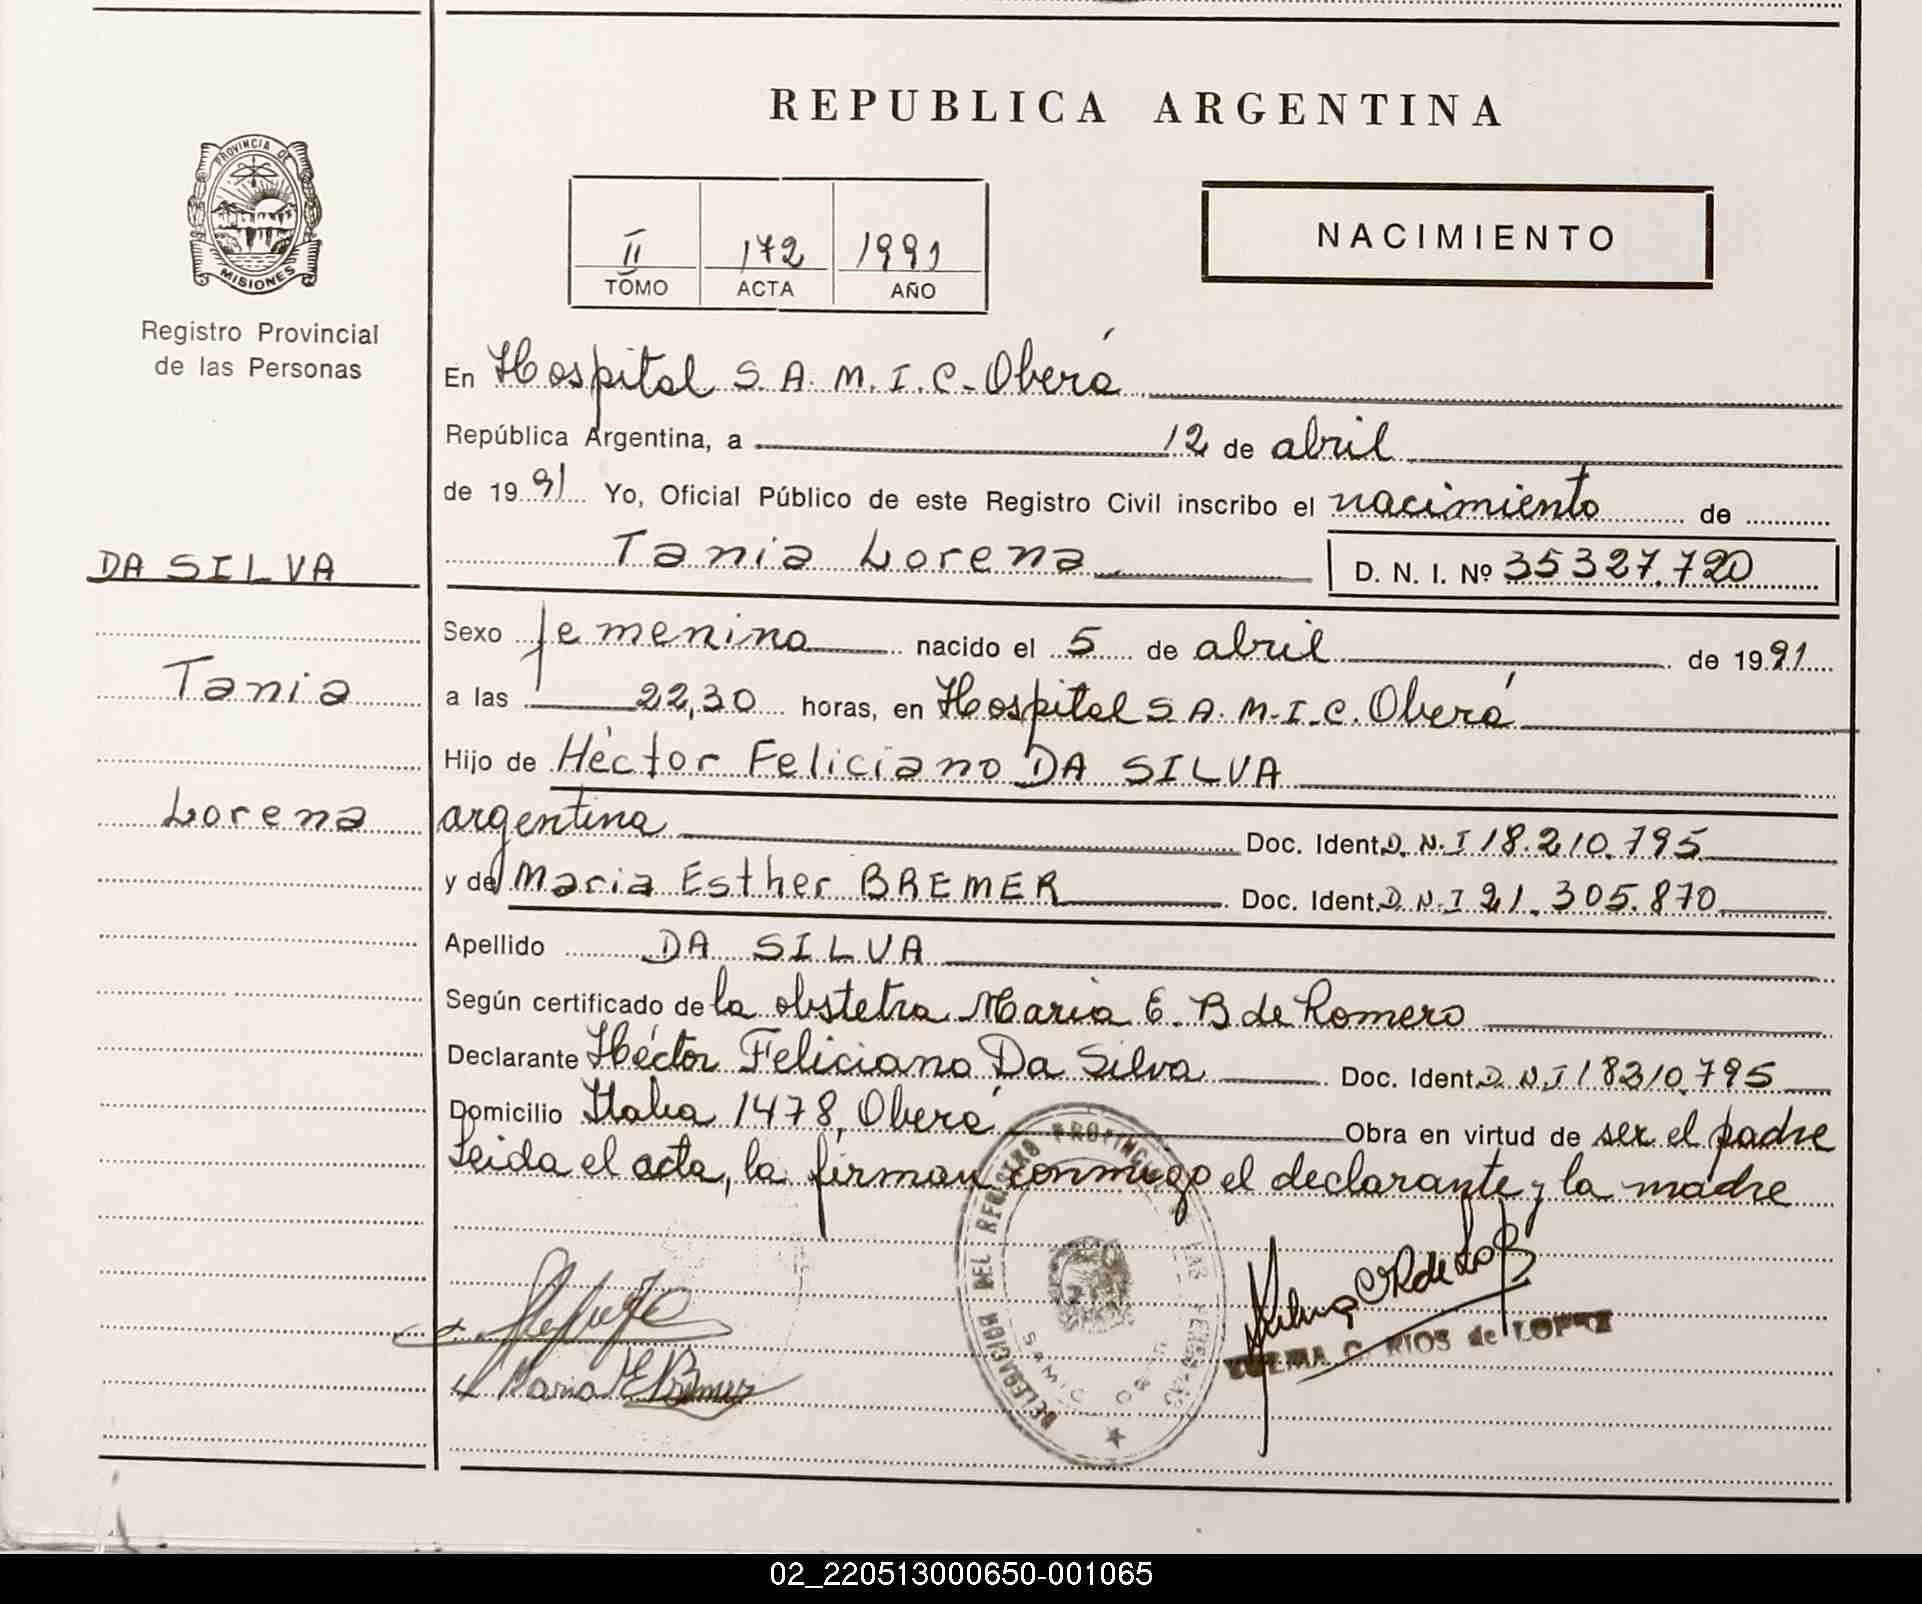 REPUBLICA ARGENTINA
PROVINCIA DE
MISIONES
Registro Provincial
de las Personas
II 172 1991
TOMO ACTA AÑO
NACIMIENTO
DA SILVA
Tania
Lorena
En Hospital S.A.M.I.C. Oberá
República Argentina, a 12 de abril
de 1991 Yo, Oficial Público de este Registro Civil inscribo el nacimiento de
Tania Lorena D. N. I. Nº 35327.720
Sexo femenino nacido el 5 de abril de 1991
a las 22,30 horas, en Hospital S.A.M.I.C. Oberá
Hijo de Héctor Feliciano DA SILVA
argentina Doc. Ident. D.N.I 18.210.795
y de Maria Esther BREMER Doc. Ident. D.N.I 21.305.870
Apellido DA SILVA
Según certificado de la obstetra Maria E. B de Romero
Declarante Héctor Feliciano Da Silva Doc. Ident. D.N.I 18210.795
Domicilio Italia 1478, Oberá Obra en virtud de ser el padre
Leida el acta, la firman conmigo el declarante y la madre
DELEGACION DEL REGISTRO PROVINCIAL DE LAS PERSONAS
SAMIC
Maria E Bremer
C. RIOS de LOPEZ
02_220513000650-001065